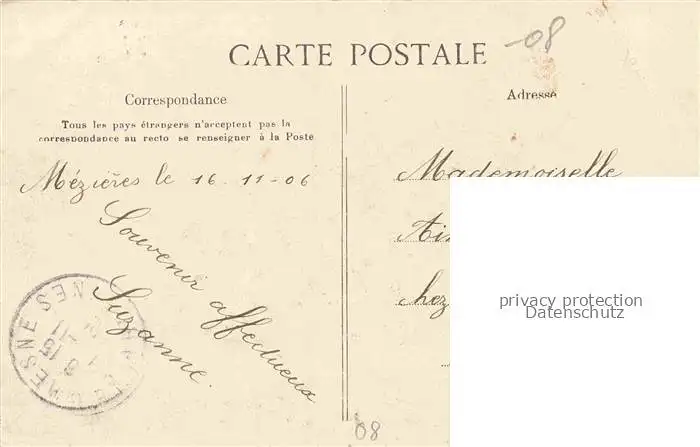 -08
CARTE POSTALE
Correspondance
Tous les pays étrangers n'acceptent pas la
correspondance au recto se renseigner à la Poste
Adresse
Mézières le 16.11-06
Souvenir affectueux
Suzanne.
Mademoiselle
chez
privacy protection
Datenschutz
08